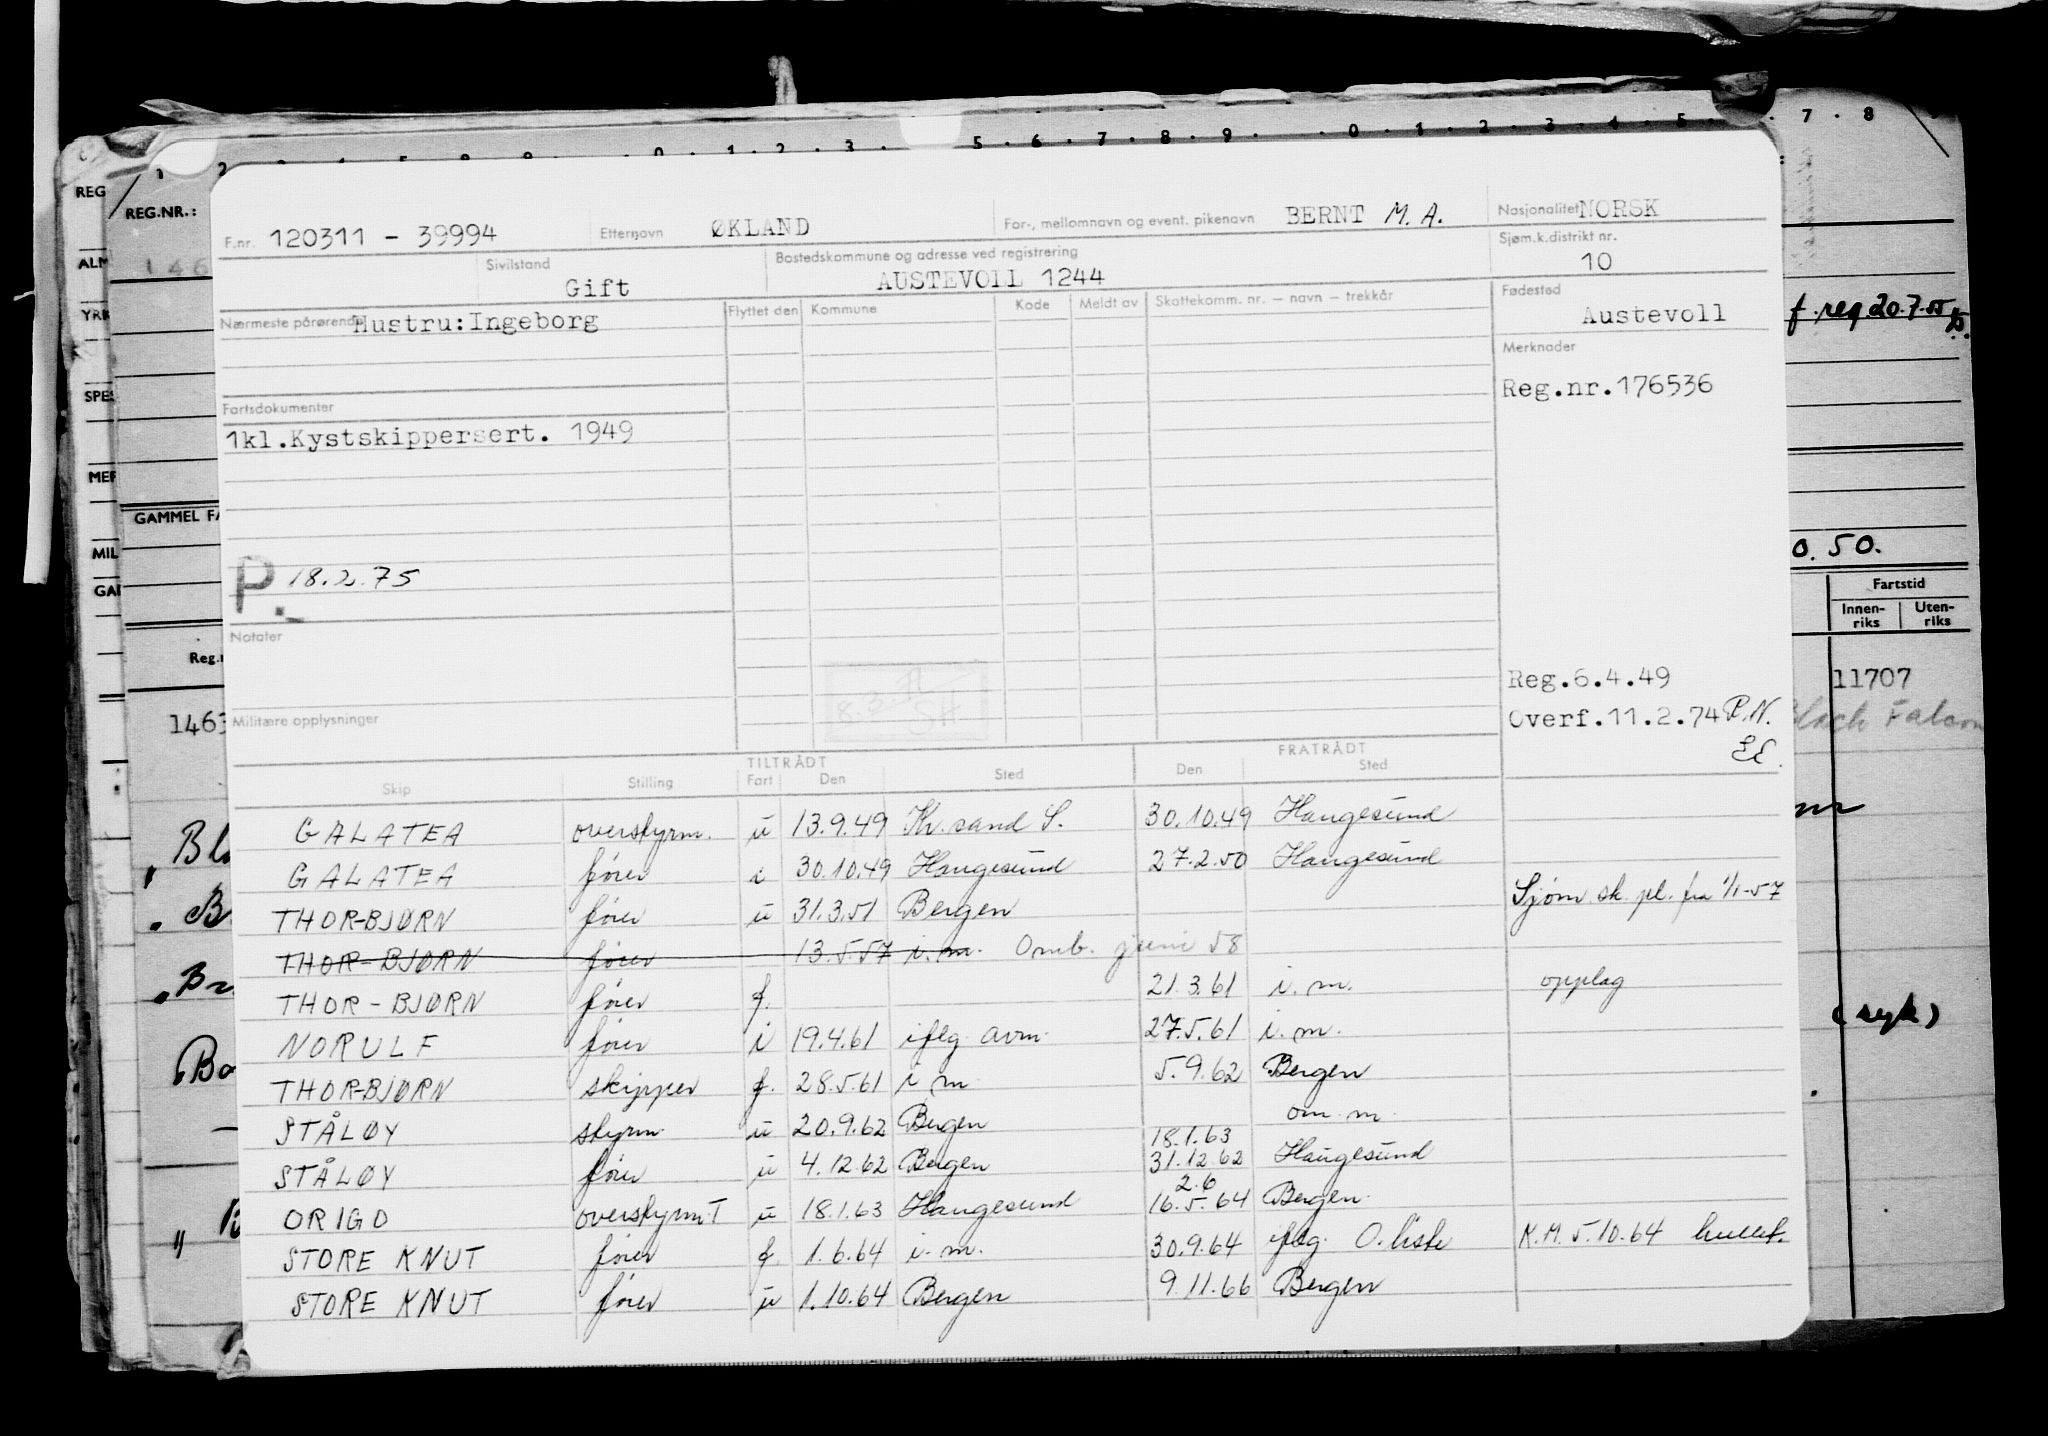 7 . 8
5 . 6 . 7 . 8 . 9 . 0 . 1 . 2 . 3 . 4 . 5
REG
REG.NR.:
ALM
146
YRK
SPES
MER
GAMMEL FA
MIL
GAL
Reg.n
1463
F.nr. 120311 - 39994 Etternavn ØKLAND For-, mellomnavn og event. pikenavn BERNT M. A. Nasjonalitet NORSK
Sivilstand Gift Bostedskommune og adresse ved registrering AUSTEVOLL 1244 Sjøm.k.distrikt nr. 10
Nærmeste pårørende Hustru: Ingeborg Flyttet den Kommune Kode Meldt av Skattekomm. nr. – navn – trekkår Fødested Austevoll
Merknader
Reg.nr.176536
Fartsdokumenter
1kl.Kystskippersert. 1949
P. 18.2.75
Notater
Militære opplysninger
Reg.6.4.49
Overf.11.2.74 P.N.
TILTRÅDT FRATRÅDT
Skip Stilling Fart Den Sted Den Sted
GALATEA overstyrm. u 13.9.49 Kr.sand S. 30.10.49 Haugesund
GALATEA fører i 30.10.49 Haugesund 27.2.50 Haugesund
THOR-BJØRN fører u 31.3.51 Bergen Sjøm. sk. pl. fra 1/1-57
THOR-BJØRN fører 13.5.57 i.m. Omb. juni 58
THOR-BJØRN fører f. 21.3.61 i.m. opplag
NORULF fører i 19.4.61 ifлg avm. 27.5.61 i.m.
THOR-BJØRN skipper f. 28.5.61 i m 5.9.62 Bergen
STÅLØY styrm. u 20.9.62 Bergen 18.1.63 om. m.
STÅLØY fører u 4.12.62 Bergen 31.12.62 Haugesund
ORIGO overstyrm T u 18.1.63 Haugesund 2.6 16.5.64 Bergen
STORE KNUT fører f. 1.6.64 i.m. 30.9.64 iflg. O.liste K.M. 5.10.64 hullet.
STORE KNUT fører u 1.10.64 Bergen 9.11.66 Bergen
f. reg 20.7.55
0.50.
Fartstid
Innen-riks Uten-riks
11707
Black Falcon
(syk)